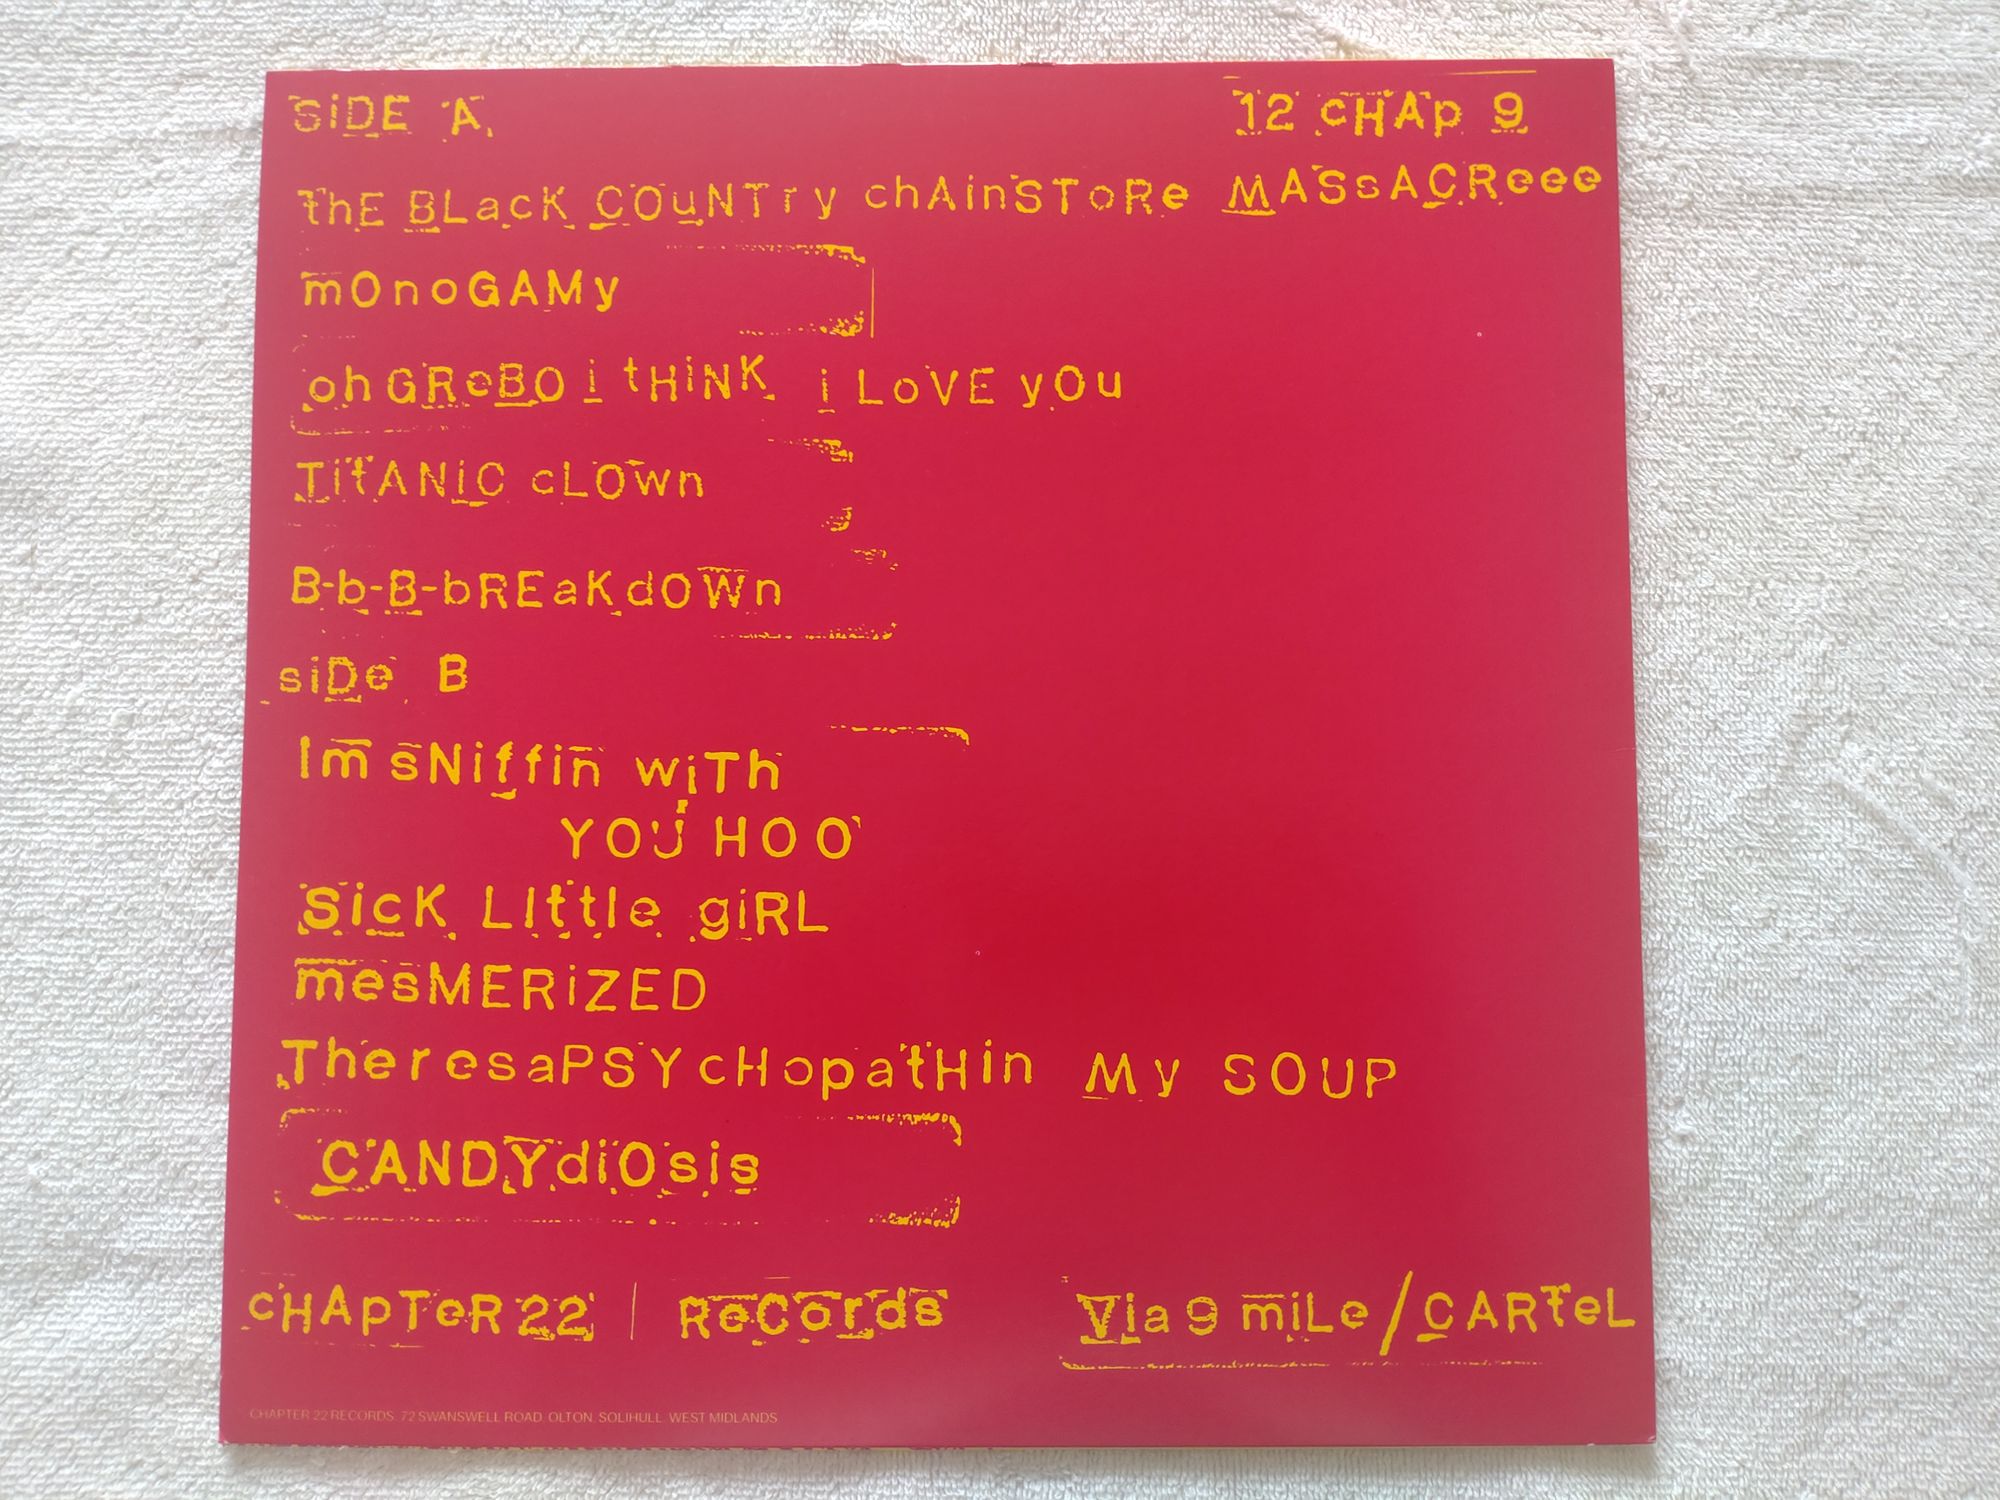 SiDE A
12 cHAp 9
thE BLacK COuNTry chAinSToRe MASsACReee
mOnoGAMy
oh GReBO i tHiNK i LoVE yOu
TitANiC cLOwn
B-b-B-bREaKdOWn
siDe B
Im sNiffin wiTh
YOU HOO
SicK LIttle giRL
mesMERiZED
TheresaPSYcHopatHin My SOUP
CANDYdiOsis
cHApTeR 22 ReCords
Via 9 miLe/CARTeL
CHAPTER 22 RECORDS. 72 SWANSWELL ROAD. OLTON. SOLIHULL. WEST MIDLANDS